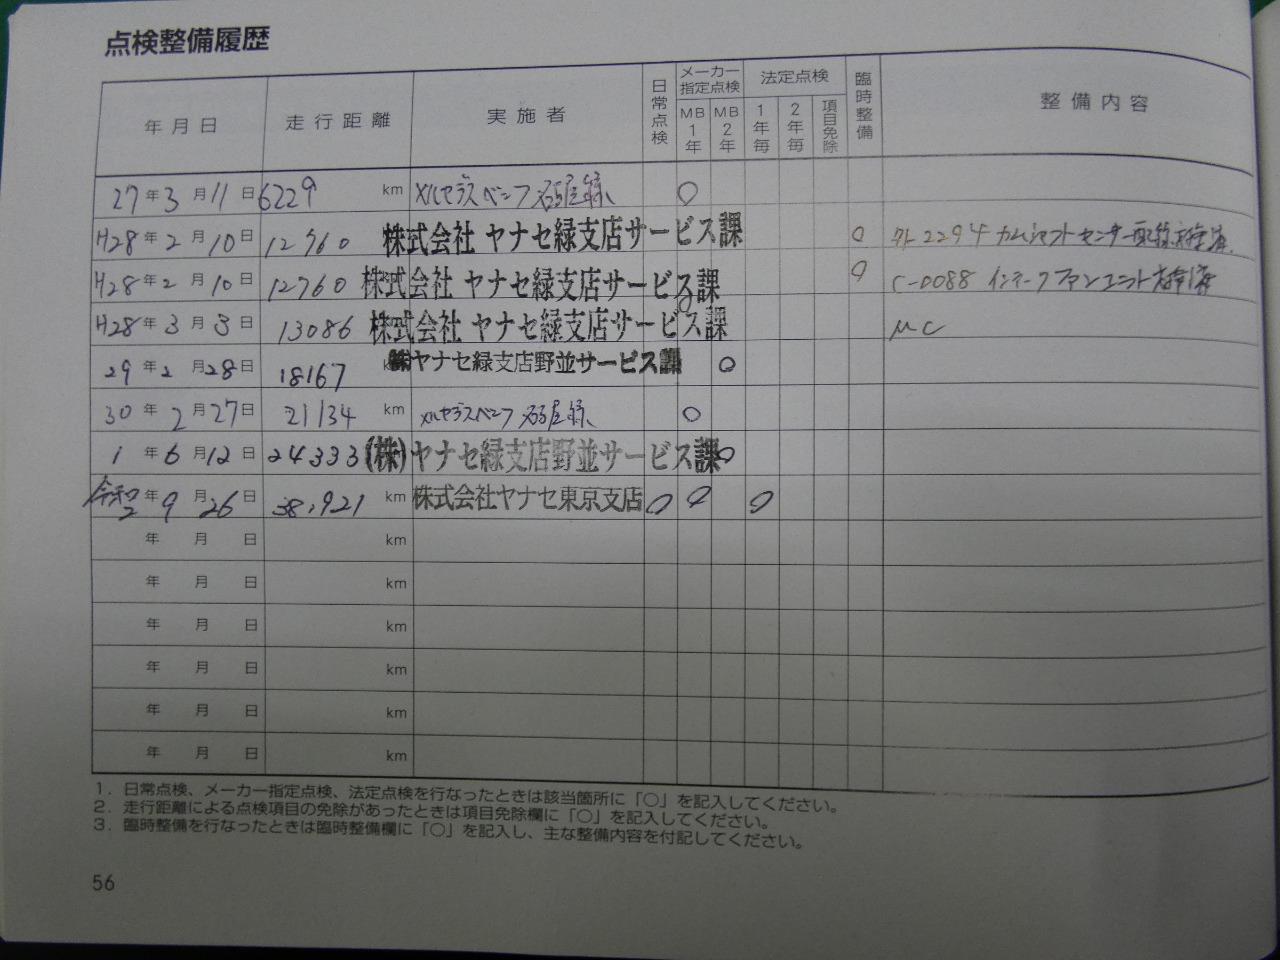 点検整備履歴
年月日 走行距離 実施者 日常点検 メーカー指定点検 法定点検 臨時整備 整備内容
MB1年 MB2年 1年毎 2年毎 項目免除
27年3月11日 6229 km メルセデスベンツ名古屋緑 ○
H28年2月10日 12760 株式会社 ヤナセ緑支店サービス課 ○ 外2294 カムシャフトセンサー配線
H28年2月10日 12760 株式会社 ヤナセ緑支店サービス課 ○ C-D088 インテークファンユニット
H28年3月3日 13086 株式会社 ヤナセ緑支店サービス課 ○ MC
29年2月28日 18167 ㈱ヤナセ緑支店野並サービス課 ○
30年2月27日 21134 km メルセデスベンツ名古屋緑 ○
1年6月12日 24333 (株)ヤナセ緑支店野並サービス課 ○
令和2年9月26日 38,921 km 株式会社ヤナセ東京支店 ○ ○ ○
年 月 日 km
年 月 日 km
年 月 日 km
年 月 日 km
年 月 日 km
年 月 日 km
1. 日常点検、メーカー指定点検、法定点検を行なったときは該当箇所に「○」を記入してください。
2. 走行距離による点検項目の免除があったときは項目免除欄に「○」を記入してください。
3. 臨時整備を行なったときは臨時整備欄に「○」を記入し、主な整備内容を付記してください。
56